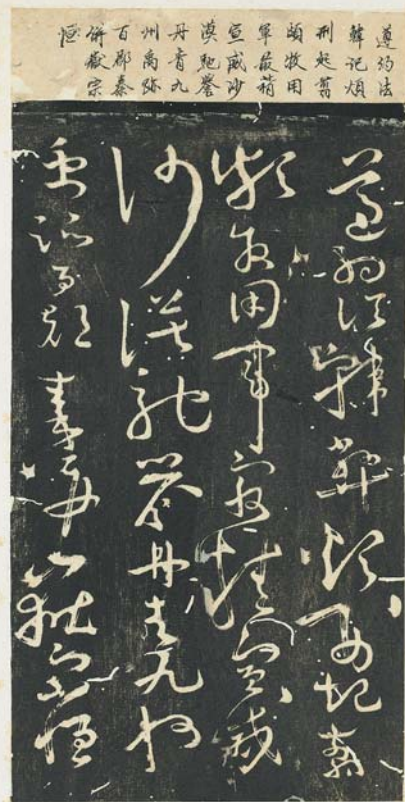 遵约法
韓记煩
刑起翦
頗牧用
軍最精
宣威沙
漠馳譽
丹青九
州禹跡
百郡秦
併嶽宗
恒
遵約法韓弊煩刑起翦
頗牧用軍最精宣威
沙漠馳譽丹青九州
禹跡百郡秦并嶽宗恒